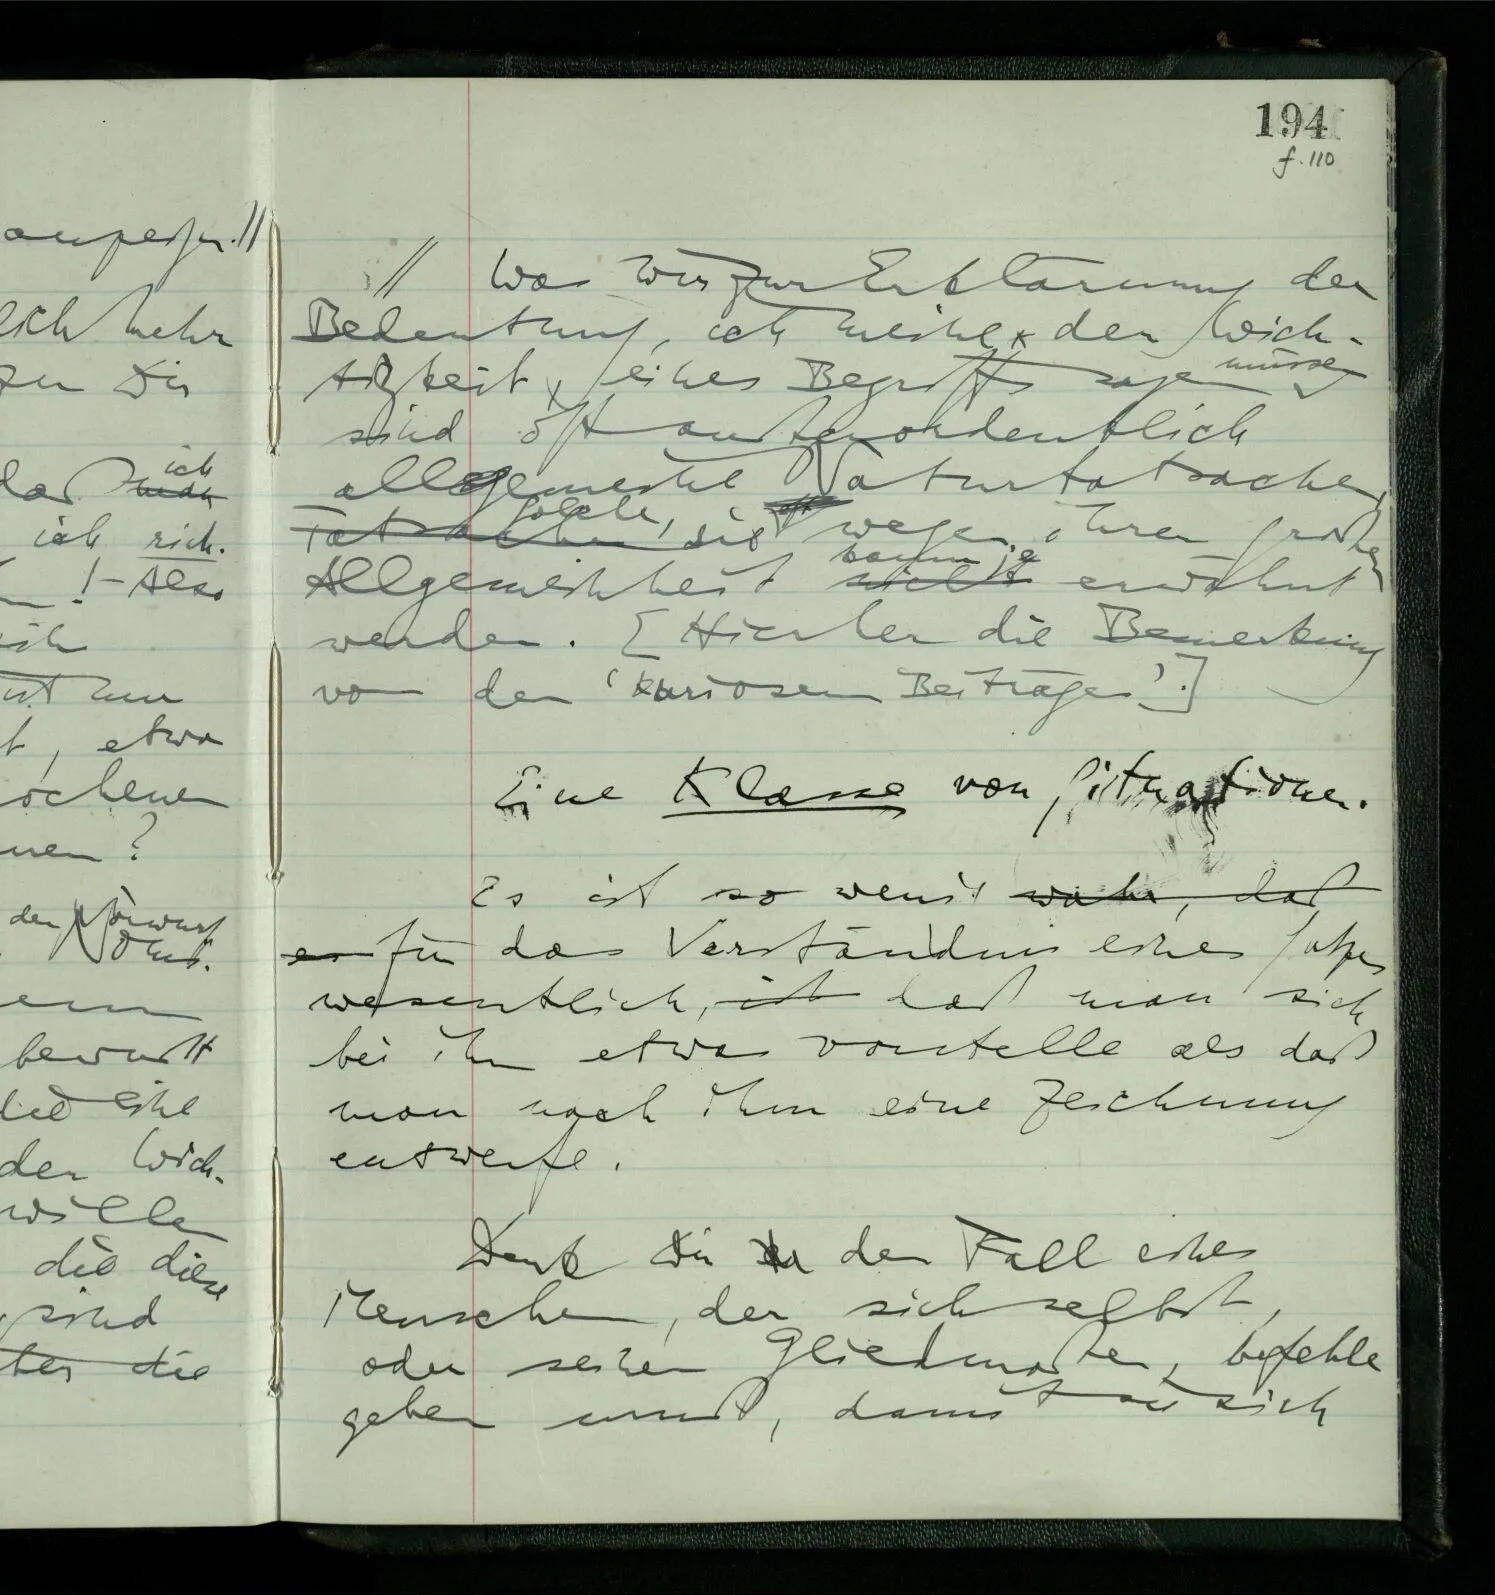 194
f. 110
anpassen.//
lich mehr
zu Dir
ich
daß man
ich rich-
! – Also
ich
ist nun
t, etwa
ochenen
nen?
den Vorwurf
bewußt
die eine
der Wich-
wille
die diese
sind
ter die
// Was wir zur Erklärung der
Bedeutung, ich meine, der Wich-
tigkeit, eines Begriffs sagen müssen
sind oft außerordentlich
allgemeine Naturtatsachen,
Tatsachen solche, die oft wegen ihrer großen
Allgemeinheit nicht kaum je erwähnt
werden. [Hierher die Bemerkung
von den 'kuriosen Beiträgen'.]
Eine Klasse von Situationen.
Es ist so wenig wahr, daß
es für das Verständnis eines Satzes
wesentlich, ist daß man sich
bei ihm etwas vorstelle als daß
man nach ihm eine Zeichnung
entwerfe.
Denk Dir den Fall eines
Menschen, der sich selbst,
oder seinen Gliedmaßen, befehle
geben muß, damit sie sich